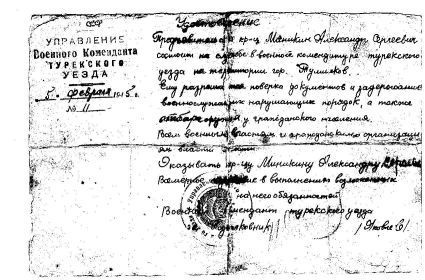 СССР
УПРАВЛЕНИЕ
Военного Коменданта
ТУРЕКСКОГО
УЕЗДА
5 февраля 1945 г.
№ 11
Удостоверение
Предъявитель кр-ц Маникин Александр Сергеевич
состоит на службе в военной комендатуре турекского
уезда на территории гор. Тулишков.
Ему разрешается поверка документов и задержание
военнослужащих нарушающих порядок, а также
отбирать оружие у гражданского населения.
Всем военным властям и гражданским организаци-
ям власти
Оказывать кр-цу Миникину Александру
Всемерное в выполнении возложенных
на него обязанностей
Военный комендант турекского уезда